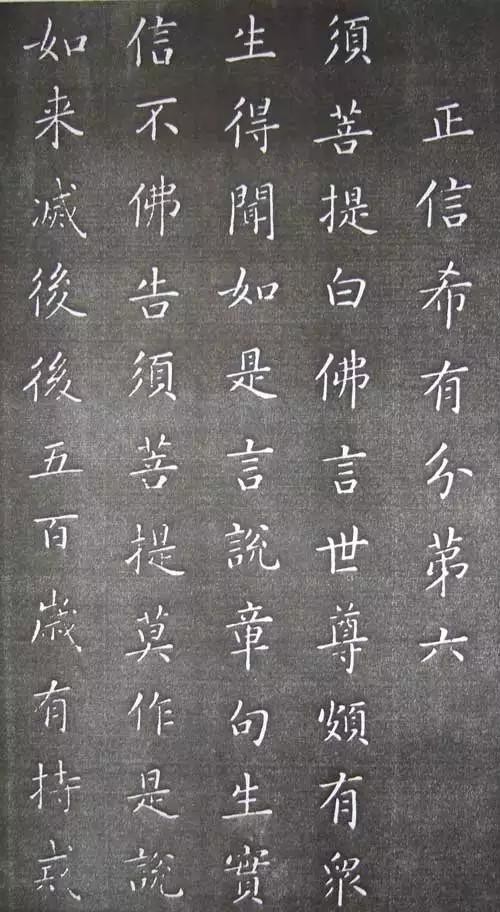 正信希有分第六
須菩提白佛言世尊頗有眾
生得聞如是言說章句生實
信不佛告須菩提莫作是說
如来滅後後五百歲有持戒